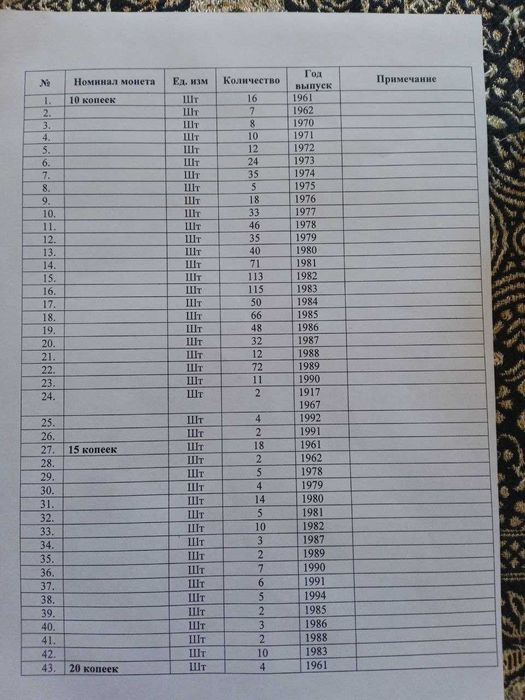 № Номинал монета Ед. изм Количество Год выпуск Примечание
1. 10 копеек Шт 16 1961
2. Шт 7 1962
3. Шт 8 1970
4. Шт 10 1971
5. Шт 12 1972
6. Шт 24 1973
7. Шт 35 1974
8. Шт 5 1975
9. Шт 18 1976
10. Шт 33 1977
11. Шт 46 1978
12. Шт 35 1979
13. Шт 40 1980
14. Шт 71 1981
15. Шт 113 1982
16. Шт 115 1983
17. Шт 50 1984
18. Шт 66 1985
19. Шт 48 1986
20. Шт 32 1987
21. Шт 12 1988
22. Шт 72 1989
23. Шт 11 1990
24. Шт 2 1917
1967
25. Шт 4 1992
26. Шт 2 1991
27. 15 копеек Шт 18 1961
28. Шт 2 1962
29. Шт 5 1978
30. Шт 4 1979
31. Шт 14 1980
32. Шт 5 1981
33. Шт 10 1982
34. Шт 3 1987
35. Шт 2 1989
36. Шт 7 1990
37. Шт 6 1991
38. Шт 5 1994
39. Шт 2 1985
40. Шт 3 1986
41. Шт 2 1988
42. Шт 10 1983
43. 20 копеек Шт 4 1961